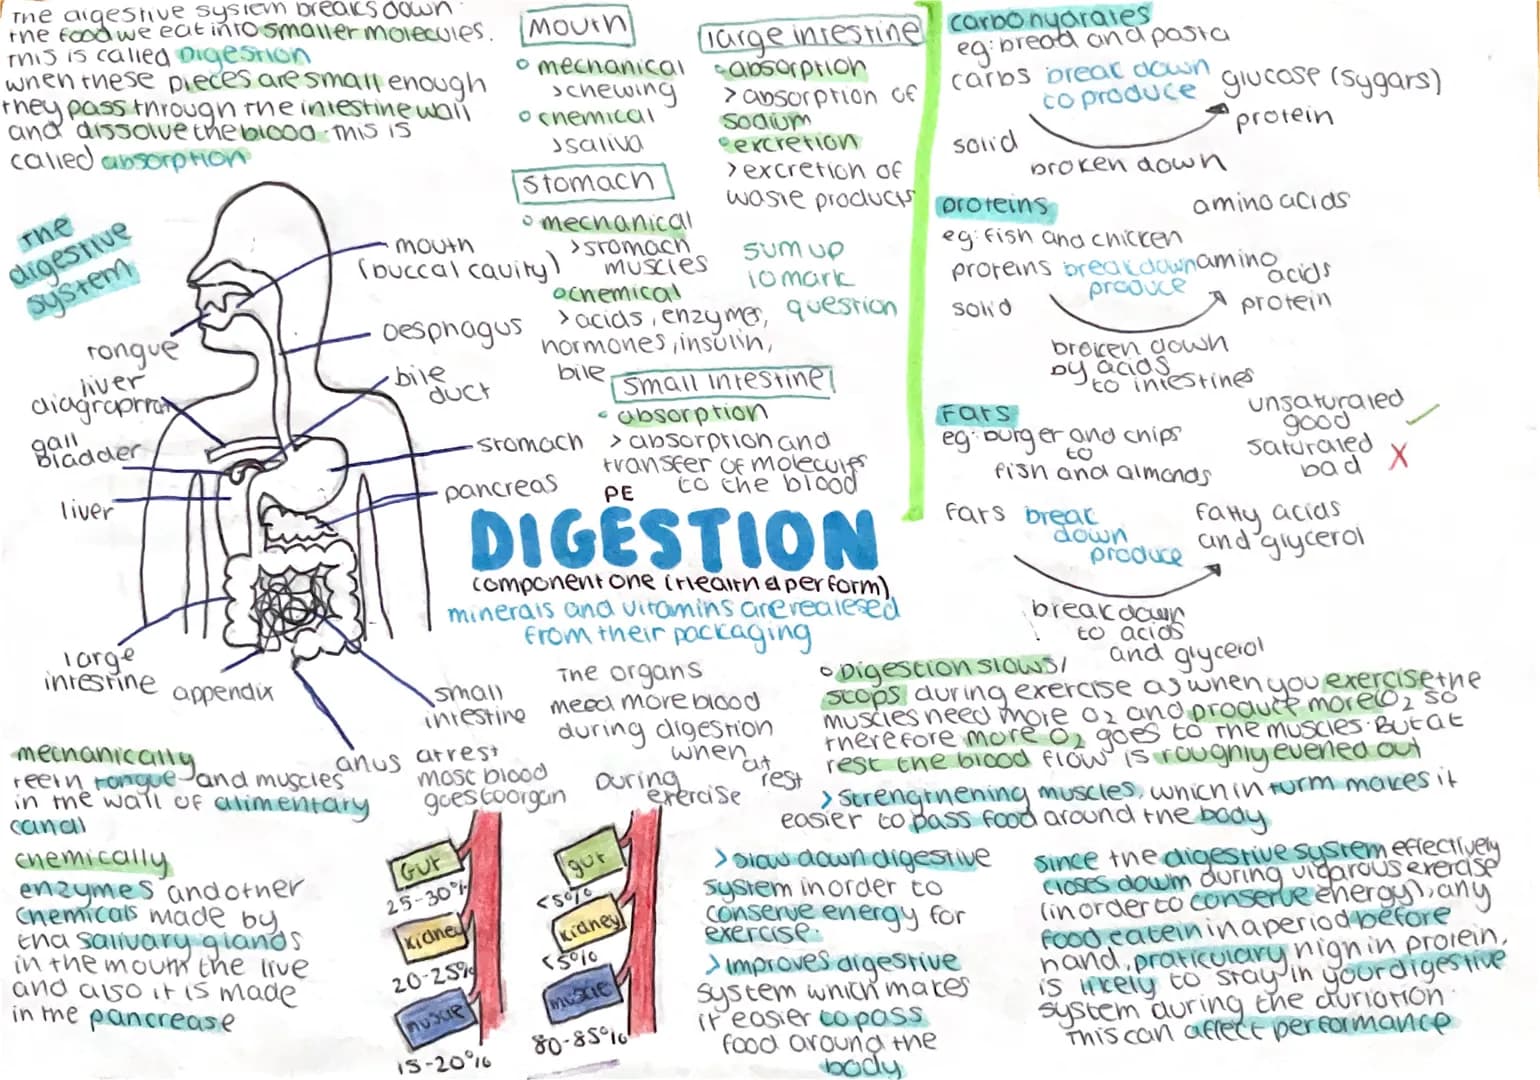 The digestive system breaks down
the food we eat into smaller molecules.
This is called Digestion
when these pieces are small enough
they pass through the intestine wall
and dissolve the blood. This is
called absorption
The
digestive
system
mouth
(buccal cavity)
oesphagus
tongue
liver
diagraphram
bile
duct
gall
bladder
stomach
liver
pancreas
large
intestine
appendix
small
intestine
anus
Mouth
mechanical
>chewing
chemical
>saliva
stomach
mechanical
>stomach
muscles
chemical
>acids, enzymes,
hormones, insulin,
bile
large intestine
absorption
>absorption of
sodium
excretion
>excretion of
waste products
sum up
10 mark
question
small intestine
absorption
>absorption and
transfer of molecules
to the blood
PE
DIGESTION
component one (Health & perform)
minerals and vitamins are realesed
from their packaging
carbohydrates
eg: bread and pasta
carbs break down glucose (sygars)
to produce
protein
solid
broken down
proteins
amino acids
eg: fish and chicken
proteins break down amino
acids
produce
solid
protein
broken down
by acids
to intestines
Fats
unsaturated
good
saturated
bad X
eg: burger and chips
to
fish and almonds
fats break
down
produce
fatty acids
and glycerol
break down
to acids
and glycerol
mechanically
teeth tongue and muscles
in the wall of alimentary
canal
chemically
enzymes and other
chemicals made by
tha salivary glands
in the mouth the live
and also it is made
in the pancrease
The organs
need more blood
during digestion
when
at
rest
at rest
most blood
goes to organ
During
exercise
Gut
25-30%
Kidney
20-25%
muscle
15-20%
gut
<5%
Kidney
<5%
muscle
80-85%
Digestion slows/
stops during exercise as when you exercise the
muscles need more O2 and produce more CO2 so
therefore more O2 goes to the muscles. But at
rest the blood flow is roughly evened out
>strengthening muscles, which in turm makes it
easier to pass food around the body
>slow down digestive
system in order to
conserve energy for
exercise.
>Improves digestive
system which makes
it easier to pass
food around the
body
since the digestive system effectively
closes down during vigarous exercise
(in order to conserve energy), any
food eatein in a period before
hand, praticulary high in protein,
is likely to stay in your digestive
system during the duriation.
This can affect performance